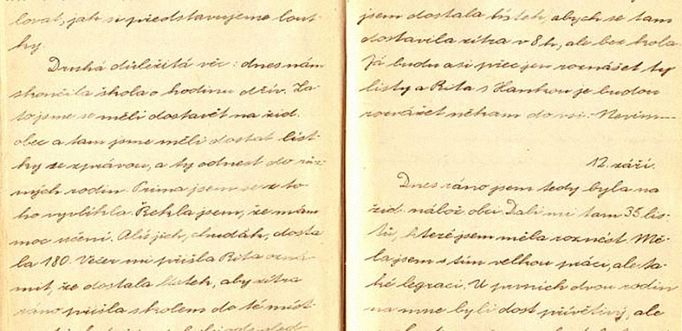 lovat, jak si představujeme lout-
ky.
Druhá důležitá věc: dnes nám
skončila škola o hodinu dřív. Za
to jsme se měli dostavit na žid.
obec a tam jsme měli dostat líst-
ky ze zprávou, a ty odnést do růz-
ných rodin. Prima jsem se z to-
ho vyvlíkla. Řekla jsem, že mám
moc učení. Ale jich, chudák, dosta-
la 180. Večer mi přišla Rita ozná-
mit, že dostala lístek, aby zítra
ráno přišla s kolem do té míst-
jsem dostala lístek, abych se tam
dostavila zítra v 8 h, ale bez kola.
Já budu asi přece jen roznášet ty
listy a Rita s Hankou je budou
rozvážet někam do vsi. Nevím
12. září.
Dnes ráno jsem tedy byla na
žid. nábož. obci. Dali mi tam 35 lis-
tů, které jsem měla roznést. Mě-
la jsem s tím velkou práci, ale ta-
ké legraci. V prvních dvou rodin
na mne byli dost přívětiví, ale